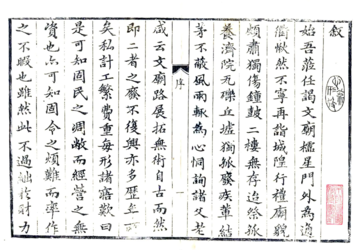 敘
始吾蒞任謁文廟櫺星門外為通
衢愀然不寧再詣城隍行禮廟貌
頗肅獨傷鐘鼓二樓無存迨祭孤
養濟院瓦礫丘墟獨孤廢疾葺結
茅不蔽風雨輒為心惻詢諸父老
序
咸云文廟路展拓無術自古而然
即二者之廢不復興亦多歷年
矣私計工繁費重每形諸寤歎曰
是可知固民之凋敝而經營之無
資也亦可知固令之煩難而率作
之不暇也雖然此不過拙於財力